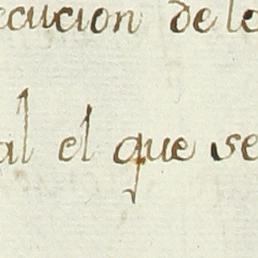 ecucion de lo
al el que se